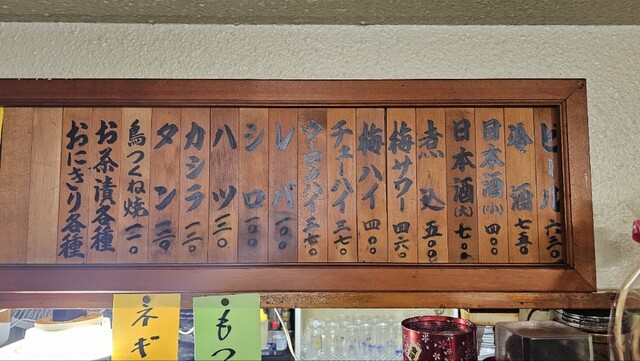 ビール 六三〇
冷酒 七五〇
日本酒(小) 四〇〇
日本酒(大) 七〇〇
煮込 五〇〇
梅サワー 四六〇
梅ハイ 四〇〇
チューハイ 三七〇
ウーロンハイ 三七〇
レバ 一〇〇
シロ 一〇〇
ハツ 一三〇
カシラ 一二〇
タン
鳥つくね焼
お茶漬各種
おにぎり各種
もつ
ネギ